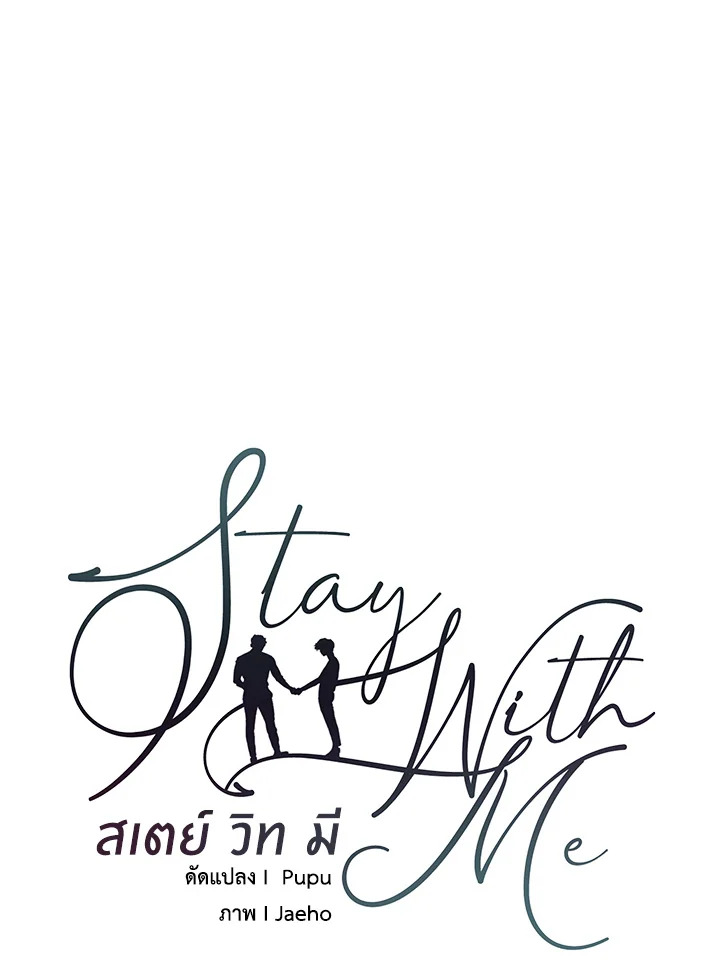 Stay
With
Me
สเตย์ วิท มี
ดัดแปลง I Pupu
ภาพ I Jaeho